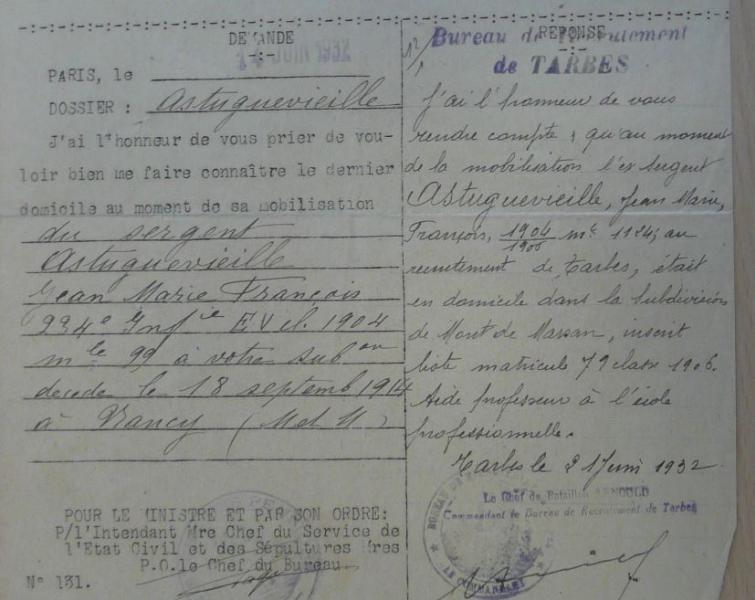 DEMANDE
JUIN 1932
PARIS, le
DOSSIER : Astuguevieille
J'ai l'honneur de vous prier de vou-
loir bien me faire connaître le dernier
domicile au moment de sa mobilisation
du sergent
Astuguevieille
Jean Marie François
234e Infie E.V. cl. 1904
mle 99 à votre subon
décédé le 18 septemb 1914
à Nancy (M et M)
POUR LE MINISTRE ET PAR SON ORDRE:
P/l'Intendant Mre Chef du Service de
l'Etat Civil et des Sépultures Mres
P.O. le Chef du Bureau
N° 131.
REPONSE
Bureau de Recrutement
de TARBES
J'ai l'honneur de vous
rendre compte, qu'au moment
de la mobilisation l'ex sergent
Astuguevieille, Jean Marie,
François, 1904/1906 mle 1124, au
recrutement de Tarbes, était
en domicile dans la Subdivision
de Mont de Marsan, inscrit
liste matricule 79 classe 1906.
Aide professeur à l'école
professionnelle.
Tarbes le 21 Juin 1932
Le Chef de Bataillon ARNOULD
Commandant le Bureau de Recrutement de Tarbes
LE COMMANDANT